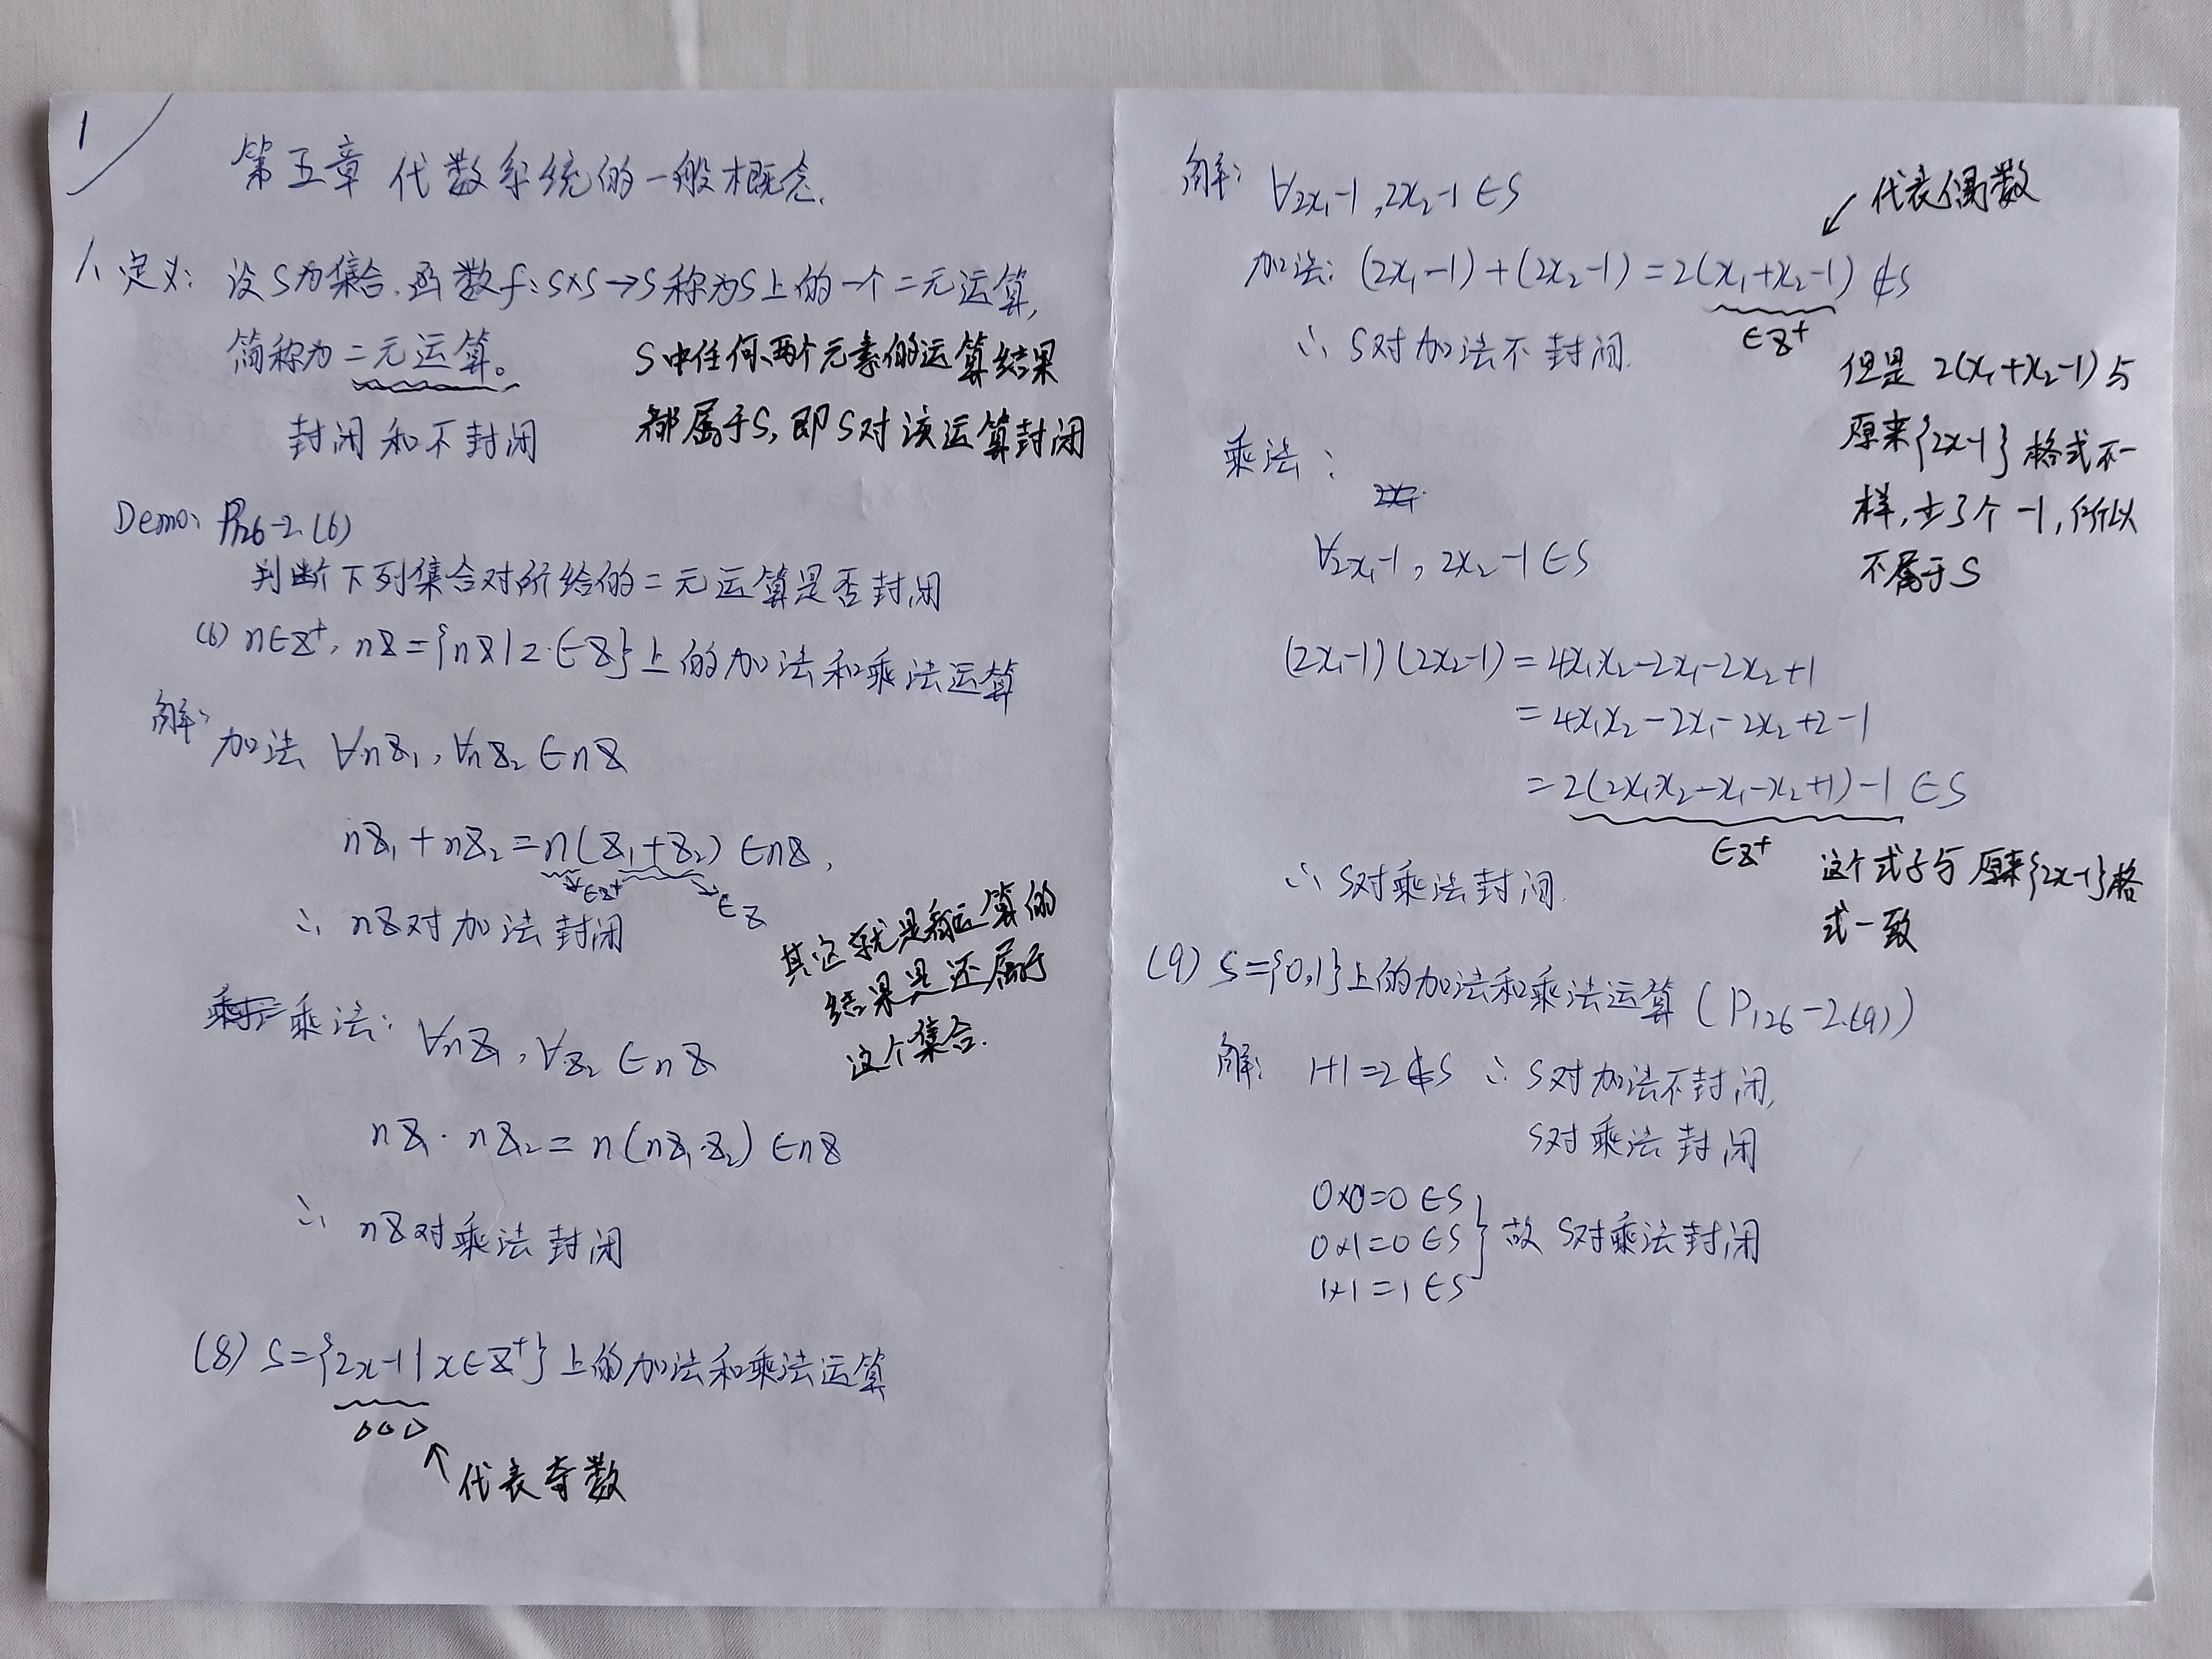 1
第五章 代数系统的一般概念.
1、定义: 设S为集合.函数f:S×S→S称为S上的一个二元运算,
简称为二元运算。
封闭和不封闭
S中任何两个元素的运算结果
都属于S,即S对该运算封闭
Demo: P126-2.(6)
判断下列集合对所给的二元运算是否封闭
(6) n∈Z⁺, nZ={nZ|z∈Z}上的加法和乘法运算
解:
加法 ∀nZ₁,∀nZ₂∈nZ
nZ₁+nZ₂=n(Z₁+Z₂)∈nZ,
∈Z⁺
∈Z
∴ nZ对加法封闭
其实就是看运算的
结果是还属于
这个集合.
乘法: ∀nZ₁,∀Z₂∈nZ
nZ₁·nZ₂=n(nZ₁·Z₂)∈nZ
∴ nZ对乘法封闭
(8) S={2x-1|x∈Z⁺}上的加法和乘法运算
代表奇数
解: ∀2x₁-1,2x₂-1∈S
代表偶数
加法: (2x₁-1)+(2x₂-1)=2(x₁+x₂-1)∉S
∈Z⁺
∴ S对加法不封闭.
但是 2(x₁+x₂-1)与
原来{2x-1}格式不一
样,少了个-1,所以
不属于S
乘法:
∀2x₁-1,2x₂-1∈S
(2x₁-1)(2x₂-1)=4x₁x₂-2x₁-2x₂+1
=4x₁x₂-2x₁-2x₂+2-1
=2(2x₁x₂-x₁-x₂+1)-1∈S
∈Z⁺
这个式子与原来{2x-1}格
式一致
∴ S对乘法封闭.
(9) S={0,1}上的加法和乘法运算(P126-2.(9))
解: 1+1=2∉S ∴ S对加法不封闭,
S对乘法封闭
0×0=0∈S
0×1=0∈S } 故 S对乘法封闭
1×1=1∈S